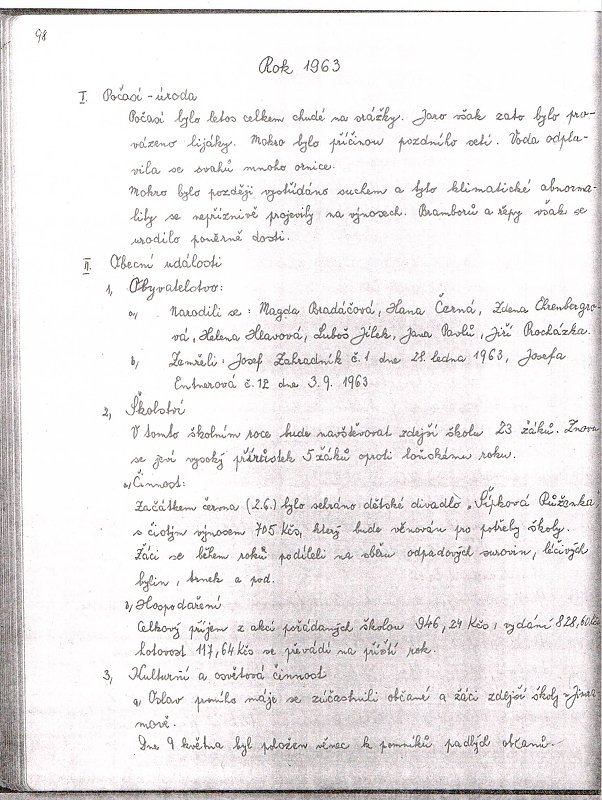 98
Rok 1963
I. Počasí - úroda
Počasí bylo letos celkem chudé na srážky. Jaro však zato bylo pro-
vázeno lijáky. Mokro bylo příčinou pozdního setí. Voda odpla-
vila se svahů mnoho ornice.
Mokro bylo později vystřídáno suchem a tyto klimatické abnorma-
lity se nepříznivě projevily na výnosech. Bramborů a řepy však se
urodilo poměrně dosti.
II. Obecní události
1, Obyvatelstvo:
a, Narodili se: Magda Bradáčová, Hana Černá, Zdena Ehrenbergro-
vá, Helena Hlavová, Luboš Jílek, Jana Pavlů, Jiří Procházka.
b, Zemřeli: Josef Zahradník č.1 dne 28. ledna 1963, Josefa
Entnerová č.12 dne 3.9.1963
2, Školství
V tomto školním roce bude navštěvovat zdejší školu 23 žáků. Znova
se jeví vysoký přírůstek 5 žáků oproti loňskému roku.
a, Činnost:
Začátkem června (2.6.) bylo sehráno dětské divadlo „Šípková Růženka
s čistým výnosem 705 Kčs, který bude věnován pro potřeby školy.
Žáci se během roků podíleli na sběru odpadových surovin, léčivých
bylin, trnek a pod.
b, Hospodaření
Celkový příjem z akcí pořádaných školou 946,24 Kčs, vydání 828,60 Kčs
hotovost 117,64 Kčs se převádí na příští rok.
3, Kulturní a osvětová činnost
a, Oslav prvního máje se zúčastnili občané a žáci zdejší školy v Jina-
mově.
Dne 9 května byl položen věnec k pomníků padlých občanů.